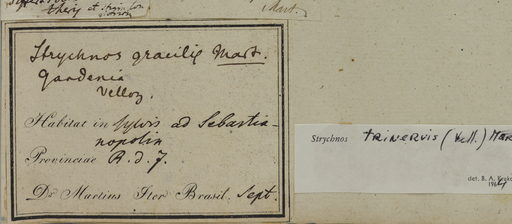 Mart.
Strychnos gracilis Mart.
Gardenia
Velloz.
Habitat in sylvis ad Sebastia-
nopolin
Provinciae R. d. J.
Dr Martius Iter Brasil. Sept.
Strychnos TRINERVIS (Vell.) MAR
det. B. A. Kruko
196